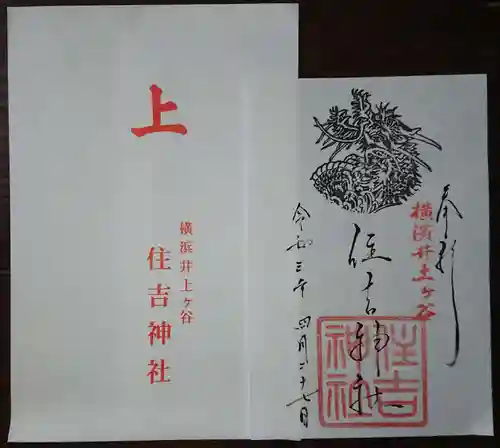 上
横浜井土ヶ谷
住吉神社
奉拝
横濱井土ヶ谷
住吉神社
住吉神社
令和三年 四月二十七日